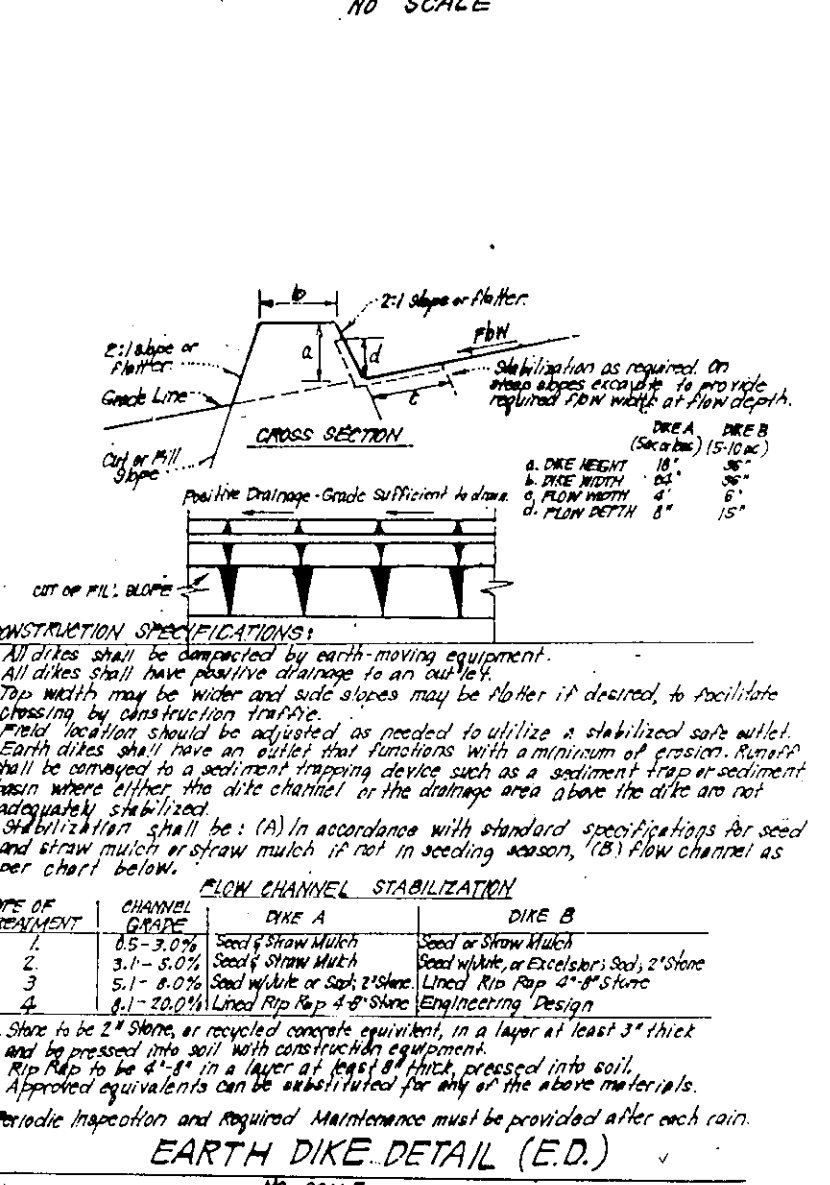 NO SCALE
b
2:1 slope or flatter.
Flow
2:1 slope or
flatter.
a
d
Stabilization as required. On
steep slopes excavate to provide
required flow width at flow depth.
Grade Line
c
CROSS SECTION
Cut or Fill
Slope
DIKE A DIKE B
(5ac or less) (5-10 ac)
a. DIKE HEIGHT 18" 36"
b. DIKE WIDTH 24" 36"
c. FLOW WIDTH 4' 6'
d. FLOW DEPTH 8" 15"
Positive Drainage - Grade Sufficient to drain.
CUT OF FILL SLOPE
ONSTRUCTION SPECIFICATIONS:
All dikes shall be compacted by earth-moving equipment.
All dikes shall have positive drainage to an outlet.
Top width may be wider and side slopes may be flatter if desired, to facilitate
crossing by construction traffic.
Field location should be adjusted as needed to utilize a stabilized safe outlet.
Earth dikes shall have an outlet that functions with a minimum of erosion. Runoff
hall be conveyed to a sediment trapping device such as a sediment trap or sediment
basin where either the dike channel or the drainage area above the dike are not
adequately stabilized.
Stabilization shall be: (A) In accordance with standard specifications for seed
and straw mulch or straw mulch if not in seeding season, (B) flow channel as
per chart below.
FLOW CHANNEL STABILIZATION
YPE OF
REATMENT CHANNEL
GRADE DIKE A DIKE B
1. 0.5-3.0% Seed & Straw Mulch Seed or Straw Mulch
2. 3.1-5.0% Seed & Straw Mulch Seed w/Jute, or Excelsior; Sod; 2" Stone
3 5.1-8.0% Seed w/Jute or Sod; 2" Stone. Lined Rip Rap 4"-8" Stone
4 8.1-20.0% Lined Rip Rap 4-8" Stone Engineering Design
. Stone to be 2" Stone, or recycled concrete equivilent, in a layer at least 3" thick
and be pressed into soil with construction equipment.
Rip Rap to be 4"-8" in a layer at least 8" thick, pressed into soil.
Approved equivalents can be substituted for any of the above materials.
Periodic Inspection and Required Maintenance must be provided after each rain.
EARTH DIKE DETAIL (E.D.)